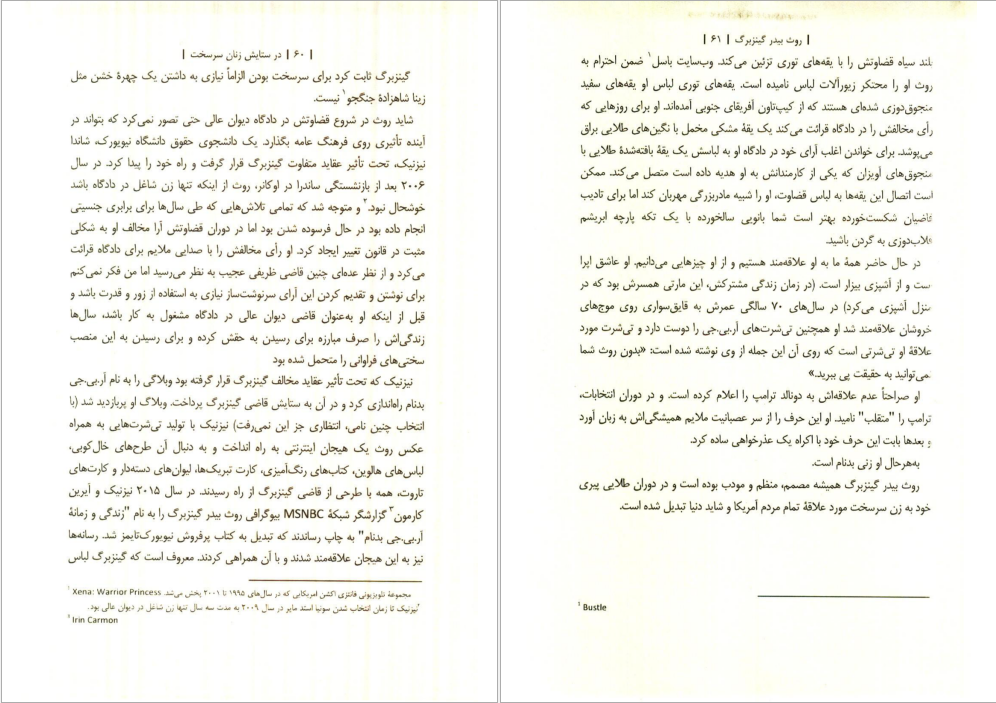 | ۶۰ | در ستایش زنان سرسخت |
گینزبرگ ثابت کرد برای سرسخت بودن الزاماً نیازی به داشتن یک چهرهٔ خشن مثل
زینا شاهزادهٔ جنگجو¹ نیست.
شاید روث در شروع قضاوتش در دادگاه دیوان عالی حتی تصور نمی‌کرد که بتواند در
آینده تأثیری روی فرهنگ عامه بگذارد. یک دانشجوی حقوق دانشگاه نیویورک، شاندا
نیزنیک، تحت تأثیر عقاید متفاوت گینزبرگ قرار گرفت و راه خود را پیدا کرد. در سال
۲۰۰۶ بعد از بازنشستگی ساندرا در اوکانر، روث از اینکه تنها زن شاغل در دادگاه باشد
خوشحال نبود.² و متوجه شد که تمامی تلاش‌هایی که طی سال‌ها برای برابری جنسیتی
انجام داده بود در حال فرسوده شدن بود اما در دوران قضاوتش آرا مخالف او به شکلی
مثبت در قانون تغییر ایجاد کرد. او رأی مخالفش را با صدایی ملایم برای دادگاه قرائت
می‌کرد و از نظر عده‌ای چنین قاضی ظریفی عجیب به نظر می‌رسید اما من فکر نمی‌کنم
برای نوشتن و تقدیم کردن این آرای سرنوشت‌ساز نیازی به استفاده از زور و قدرت باشد و
قبل از اینکه او به‌عنوان قاضی دیوان عالی در دادگاه مشغول به کار باشد، سال‌ها
زندگی‌اش را صرف مبارزه برای رسیدن به حقش کرده و برای رسیدن به این منصب
سختی‌های فراوانی را متحمل شده بود
نیزنیک که تحت تأثیر عقاید مخالف گینزبرگ قرار گرفته بود وبلاگی را به نام آر.بی.جی
بدنام راه‌اندازی کرد و در آن به ستایش قاضی گینزبرگ پرداخت. وبلاگ او پربازدید شد (با
انتخاب چنین نامی، انتظاری جز این نمی‌رفت) نیزنیک با تولید تی‌شرت‌هایی به همراه
عکس روث یک هیجان اینترنتی به راه انداخت و به دنبال آن طرح‌های خال‌کوبی،
لباس‌های هالوین، کتاب‌های رنگ‌آمیزی، کارت تبریک‌ها، لیوان‌های دسته‌دار و کارت‌های
تاروت، همه با طرحی از قاضی گینزبرگ از راه رسیدند. در سال ۲۰۱۵ نیزنیک و آیرین
کارمون³ گزارشگر شبکهٔ MSNBC بیوگرافی روث بیدر گینزبرگ را به نام "زندگی و زمانهٔ
آر.بی.جی بدنام" به چاپ رساندند که تبدیل به کتاب پرفروش نیویورک‌تایمز شد. رسانه‌ها
نیز به این هیجان علاقه‌مند شدند و با آن همراهی کردند. معروف است که گینزبرگ لباس
¹ Xena: Warrior Princess مجموعهٔ تلویزیونی فانتزی اکشن امریکایی که در سال‌های ۱۹۹۵ تا ۲۰۰۱ پخش می‌شد.
²نیزنیک تا زمان انتخاب شدن سونیا استد مایر در سال ۲۰۰۹ به مدت سه سال تنها زن شاغل در دیوان عالی بود.
³ Irin Carmon
| روث بیدر گینزبرگ | ۶۱ |
بلند سیاه قضاوتش را با یقه‌های توری تزئین می‌کند. وب‌سایت باسل¹ ضمن احترام به
روث او را محتکر زیورآلات لباس نامیده است. یقه‌های توری لباس او یقه‌های سفید
منجوق‌دوزی شده‌ای هستند که از کیپ‌تاون آفریقای جنوبی آمده‌اند. او برای روزهایی که
رأی مخالفش را در دادگاه قرائت می‌کند یک یقهٔ مشکی مخمل با نگین‌های طلایی براق
می‌پوشد. برای خواندن اغلب آرای خود در دادگاه او به لباسش یک یقهٔ بافته‌شدهٔ طلایی با
منجوق‌های آویزان که یکی از کارمندانش به او هدیه داده است متصل می‌کند. ممکن
است اتصال این یقه‌ها به لباس قضاوت، او را شبیه مادربزرگی مهربان کند اما برای تادیب
قاضیان شکست‌خورده بهتر است شما بانویی سالخورده با یک تکه پارچه ابریشم
قلاب‌دوزی به گردن باشید.
در حال حاضر همهٔ ما به او علاقه‌مند هستیم و از او چیزهایی می‌دانیم. او عاشق اپرا
است و از آشپزی بیزار است. (در زمان زندگی مشترکش، این مارتی همسرش بود که در
منزل آشپزی می‌کرد) در سال‌های ۷۰ سالگی عمرش به قایق‌سواری روی موج‌های
خروشان علاقه‌مند شد او همچنین تی‌شرت‌های آر.بی.جی را دوست دارد و تی‌شرت مورد
علاقهٔ او تی‌شرتی است که روی آن این جمله از وی نوشته شده است: «بدون روث شما
نمی‌توانید به حقیقت پی ببرید.»
او صراحتاً عدم علاقه‌اش به دونالد ترامپ را اعلام کرده است. و در دوران انتخابات،
ترامپ را "متقلب" نامید. او این حرف را از سر عصبانیت ملایم همیشگی‌اش به زبان آورد
و بعدها بابت این حرف خود با اکراه یک عذرخواهی ساده کرد.
به‌هرحال او زنی بدنام است.
روث بیدر گینزبرگ همیشه مصمم، منظم و مودب بوده است و در دوران طلایی پیری
خود به زن سرسخت مورد علاقهٔ تمام مردم آمریکا و شاید دنیا تبدیل شده است.
¹ Bustle